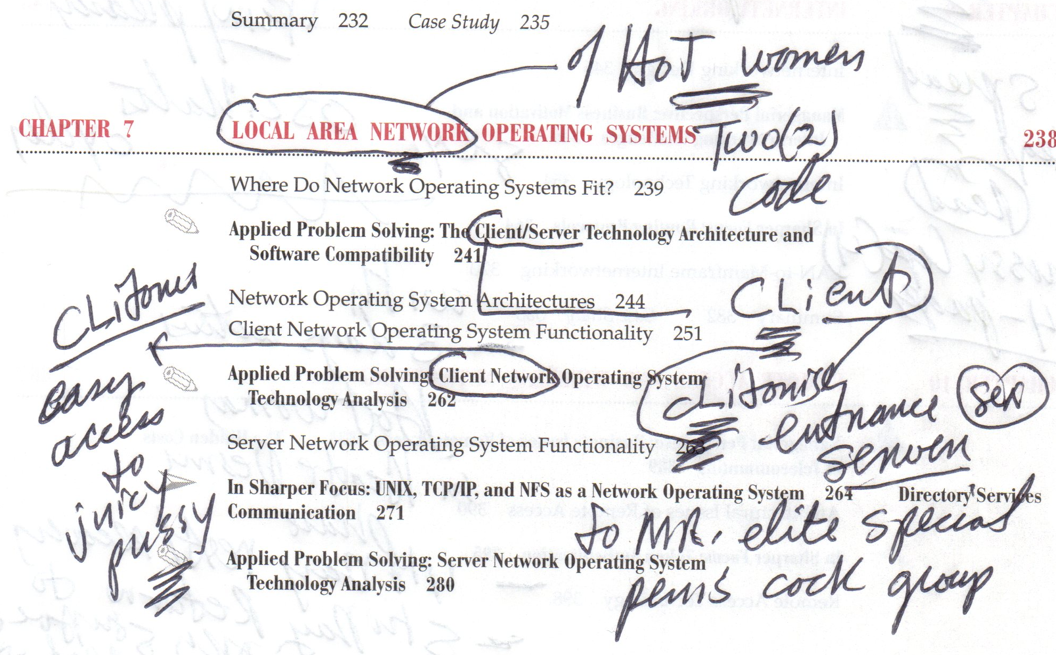 Summary 232 Case Study 235
of HOT women
CHAPTER 7 LOCAL AREA NETWORK OPERATING SYSTEMS 238
TWO(2)
code
Where Do Network Operating Systems Fit? 239
Applied Problem Solving: The Client/Server Technology Architecture and
Software Compatibility 241
CLient
Network Operating System Architectures 244
Client Network Operating System Functionality 251
Applied Problem Solving: Client Network Operating System
Technology Analysis 262
easy
access
to
juicy
pussy
entrance
sex
Server Network Operating System Functionality 263
In Sharper Focus: UNIX, TCP/IP, and NFS as a Network Operating System 264 Directory Services
Communication 271
to MR. elite special
penis cock group
Applied Problem Solving: Server Network Operating System
Technology Analysis 280